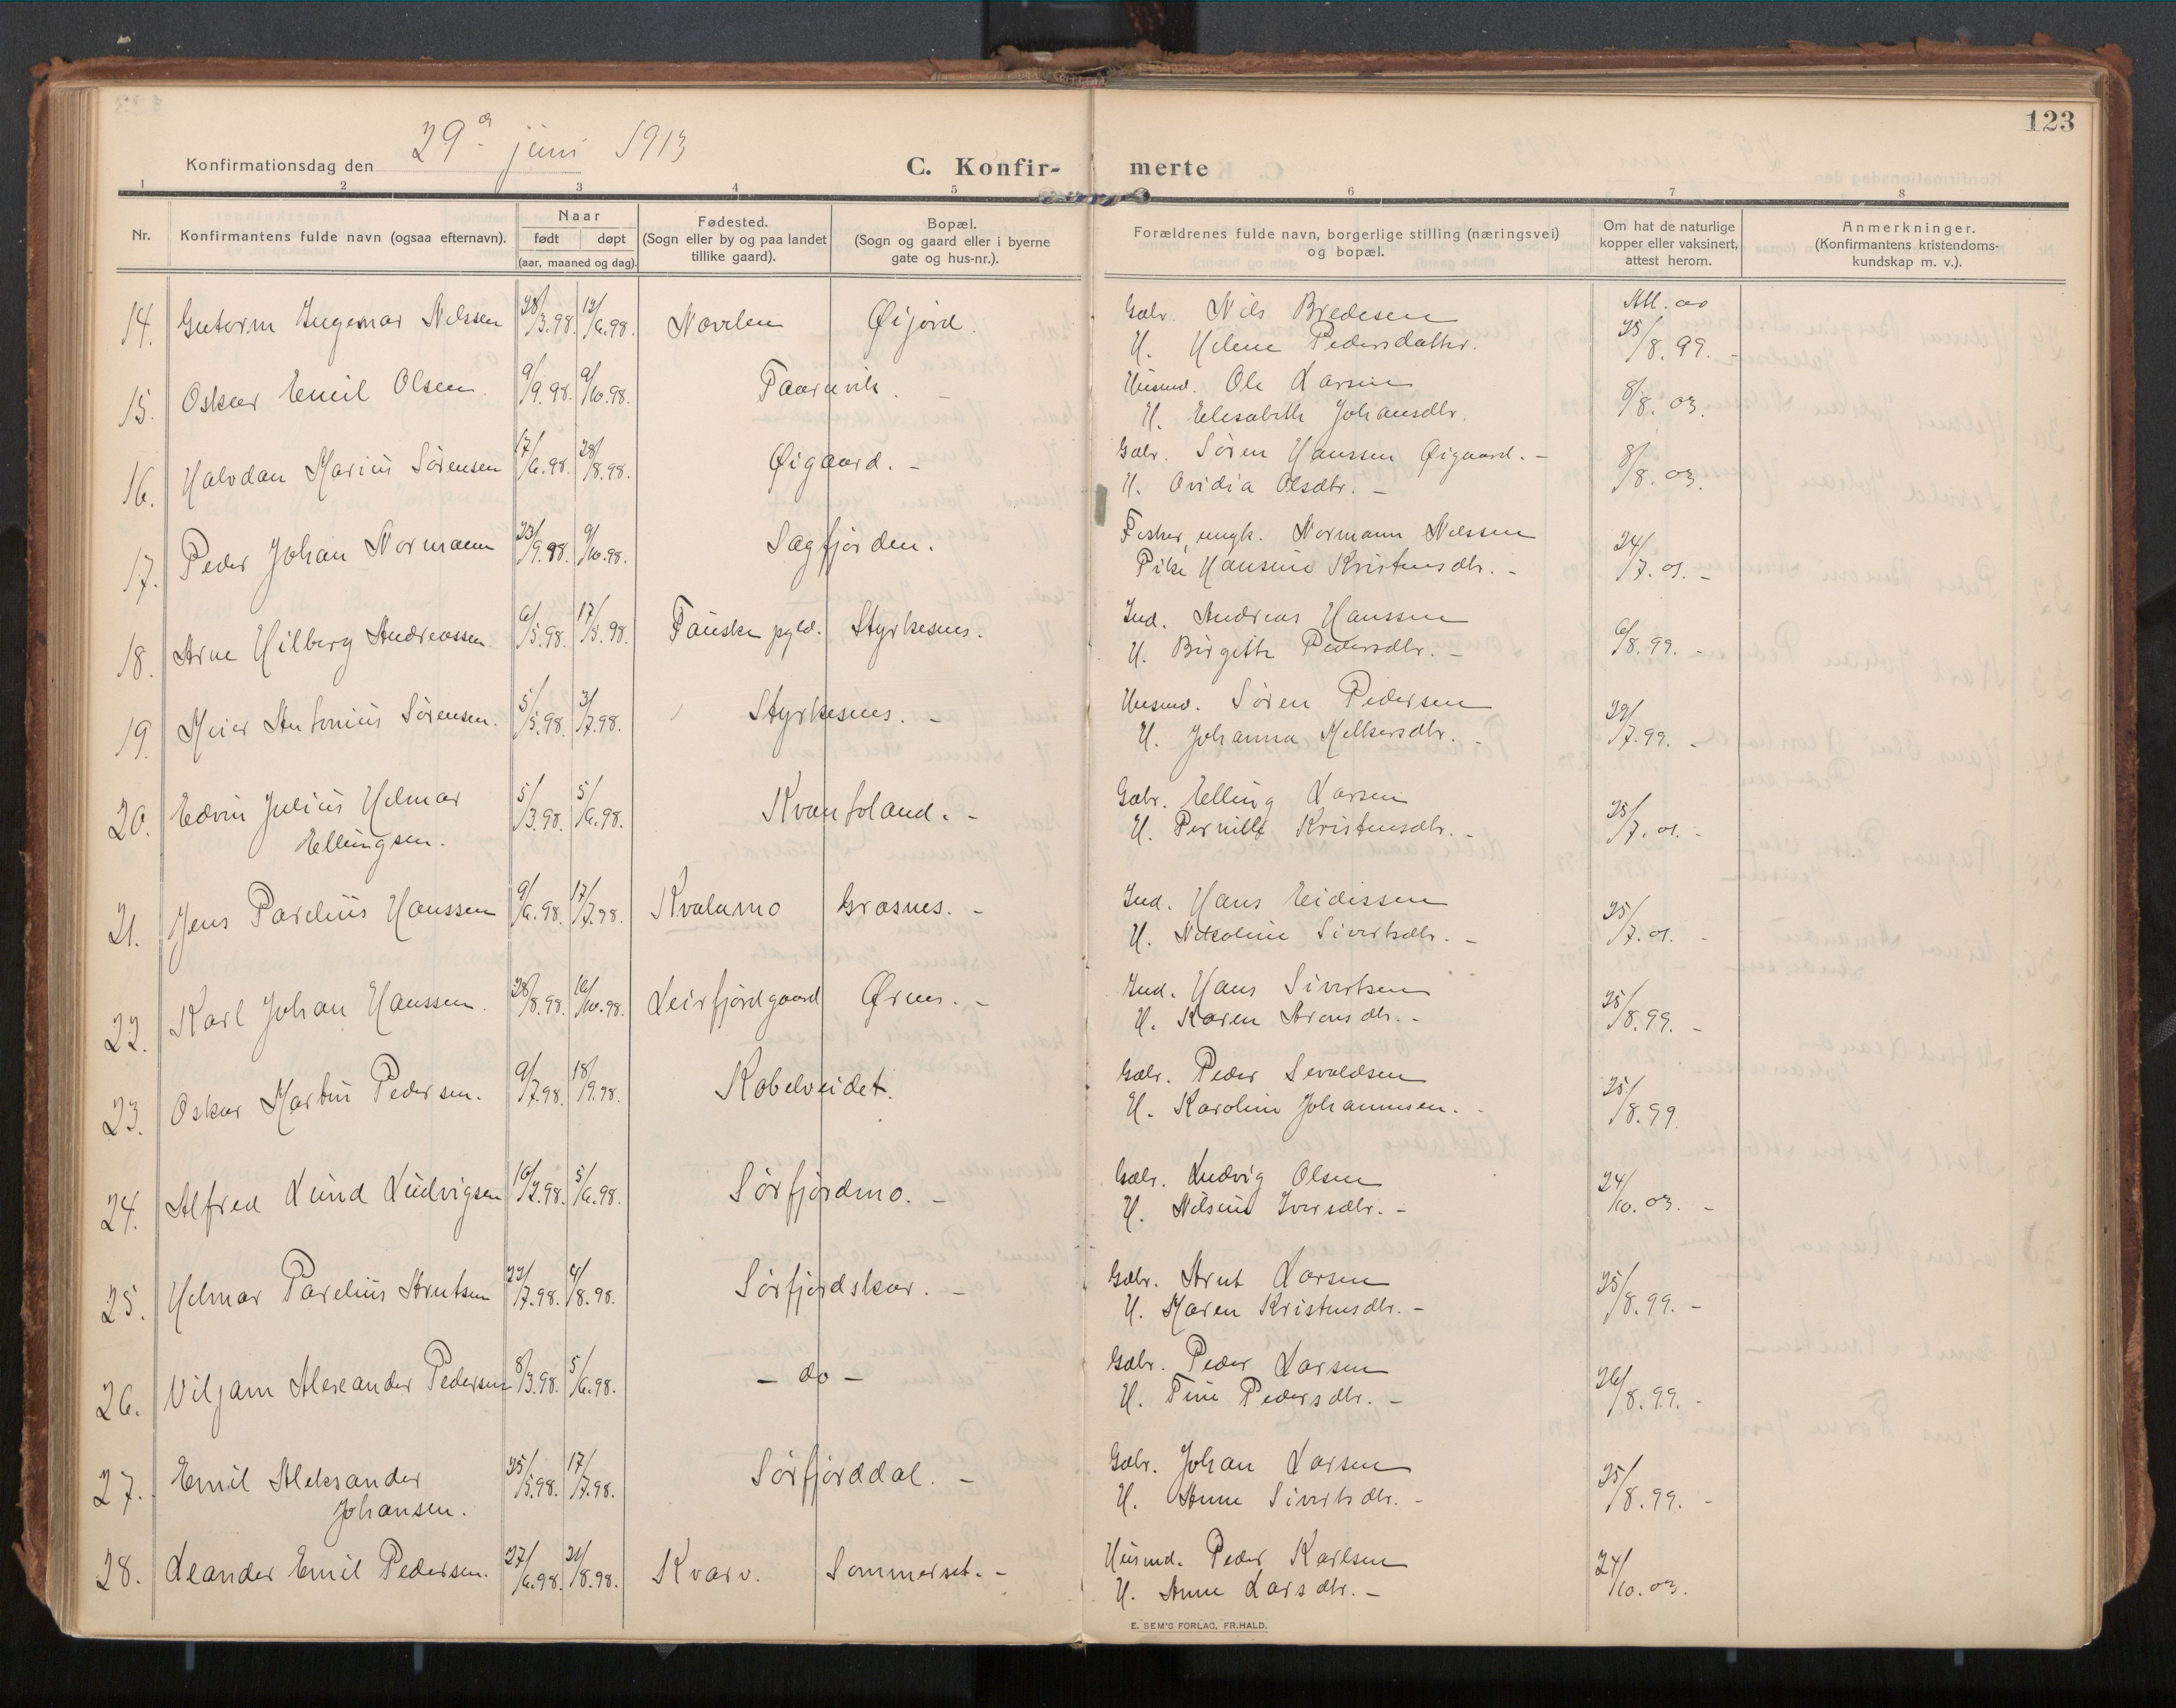 123
Konfirmationsdag den 29de juni 1913
C. Konfir- merte
1 2 3 4 5 6 7 8
Nr.
Konfirmantens fulde navn (ogsaa efternavn).
Naar
født døpt
(aar, maaned og dag).
Fødested.
(Sogn eller by og paa landet
tillike gaard).
Bopæl.
(Sogn og gaard eller i byerne
gate og hus-nr.).
Forældrenes fulde navn, borgerlige stilling (næringsvei)
og bopæl.
Om hat de naturlige
kopper eller vaksinert,
attest herom.
Anmerkninger.
(Konfirmantens kristendoms-
kundskap m. v.).
14. Gutorm Ingemar Nilssen 28/3.98. 12/6.98. Øijord. Gbr. Nils Bredesen Att. av
H. Helene Pedersdatter. 25/8.99. -
15. Oskar Emil Olsen. 9/9.98. 9/10.98. Taarnvik. - Husmd. Ole Larsen 8/8.03.
H. Elisabeth Johansdtr.
16. Halvdan Marius Sørensen 17/6.98. 28/8.98. Øigaard. - Gbr. Søren Hanssen Øigaard. - 8/8.03.
H. Ovidia Olsdtr. -
17. Peder Johan Normann 23/9.98. 9/10.98. Sagfjorden. Fisker, ungk. Normann Nilssen 24/7.01. -
Pike Hansine Kristensdtr. -
18. Arne Hilberg Andreassen. 6/5.98. 17/5.98. Fauske pgld. Styrkesnes. Ind. Andreas Hanssen 6/8.99. -
H. Birgitte Pedersdtr. -
19. Meier Antonius Sørensen. 5/5.98. 3/7.98. Styrkesnes. - Husmd. Søren Pedersen 29/7.99. -
H. Johanna Melkersdtr. -
20. Edvin Julius Hilmar 5/3.98. 5/6.98. Kvantoland. - Gbr. Elling Larsen 25/7.01. -
Ellingsen. H. Pernille Kristensdtr. -
21. Jens Parelius Hanssen 9/6.98. 17/7.98. Kvalnmo Grasnes. - Ind. Hans Eidissen 25/7.01. -
H. Nikoline Sivertsdtr. -
22. Karl Johan Hanssen. 28/8.98. 16/10.98. Leirfjordgaard Ørnes. - Ind. Hans Sivertsen 25/8.99. -
H. Karen Aronsdtr. -
23. Oskar Martin Pedersen. 9/7.98. 18/9.98. Kobelveidet. Gbr. Peder Sevaldsen 25/8.99
H. Karoline Johannesen. -
24. Alfred Lund Ludvigsen 10/2.98. 5/6.98. Sørfjordmo. - Gbr. Ludvig Olsen 24/10.03. -
H. Nilsine Iversdtr. -
25. Hilmar Parelius Arntsen 22/7.98. 4/8.98. Sørfjordskar. - Gbr. Arnt Larsen 25/8.99. -
H. Maren Kristensdtr. -
26. Viljam Alexander Pedersen 8/3.98. 5/6.98. - do - Gbr. Peder Larsen 26/8.99. -
H. Tine Pedersdtr. -
27. Emil Aleksander 25/5.98. 17/7.98. Sørfjorddal. - Gbr. Johan Larsen 25/8.99. -
Johansen. H. Anne Sivertsdtr. -
28. Leander Emil Pedersen. 27/6.98. 21/8.98. Kvarv. Sommerset. - Husmd. Peder Karlsen 24/10.03.
H. Anne Larsdtr. -
E. SEM'S FORLAG, FR.HALD.